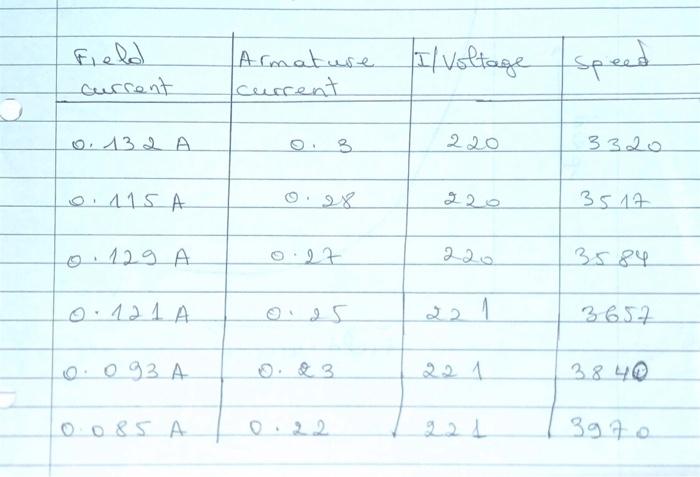 Field current | Armature current | I/Voltage | Speed
0.132 A | 0.3 | 220 | 3320
0.115 A | 0.28 | 220 | 3517
0.129 A | 0.27 | 220 | 3584
0.121 A | 0.25 | 221 | 3657
0.093 A | 0.23 | 221 | 3840
0.085 A | 0.22 | 221 | 3970